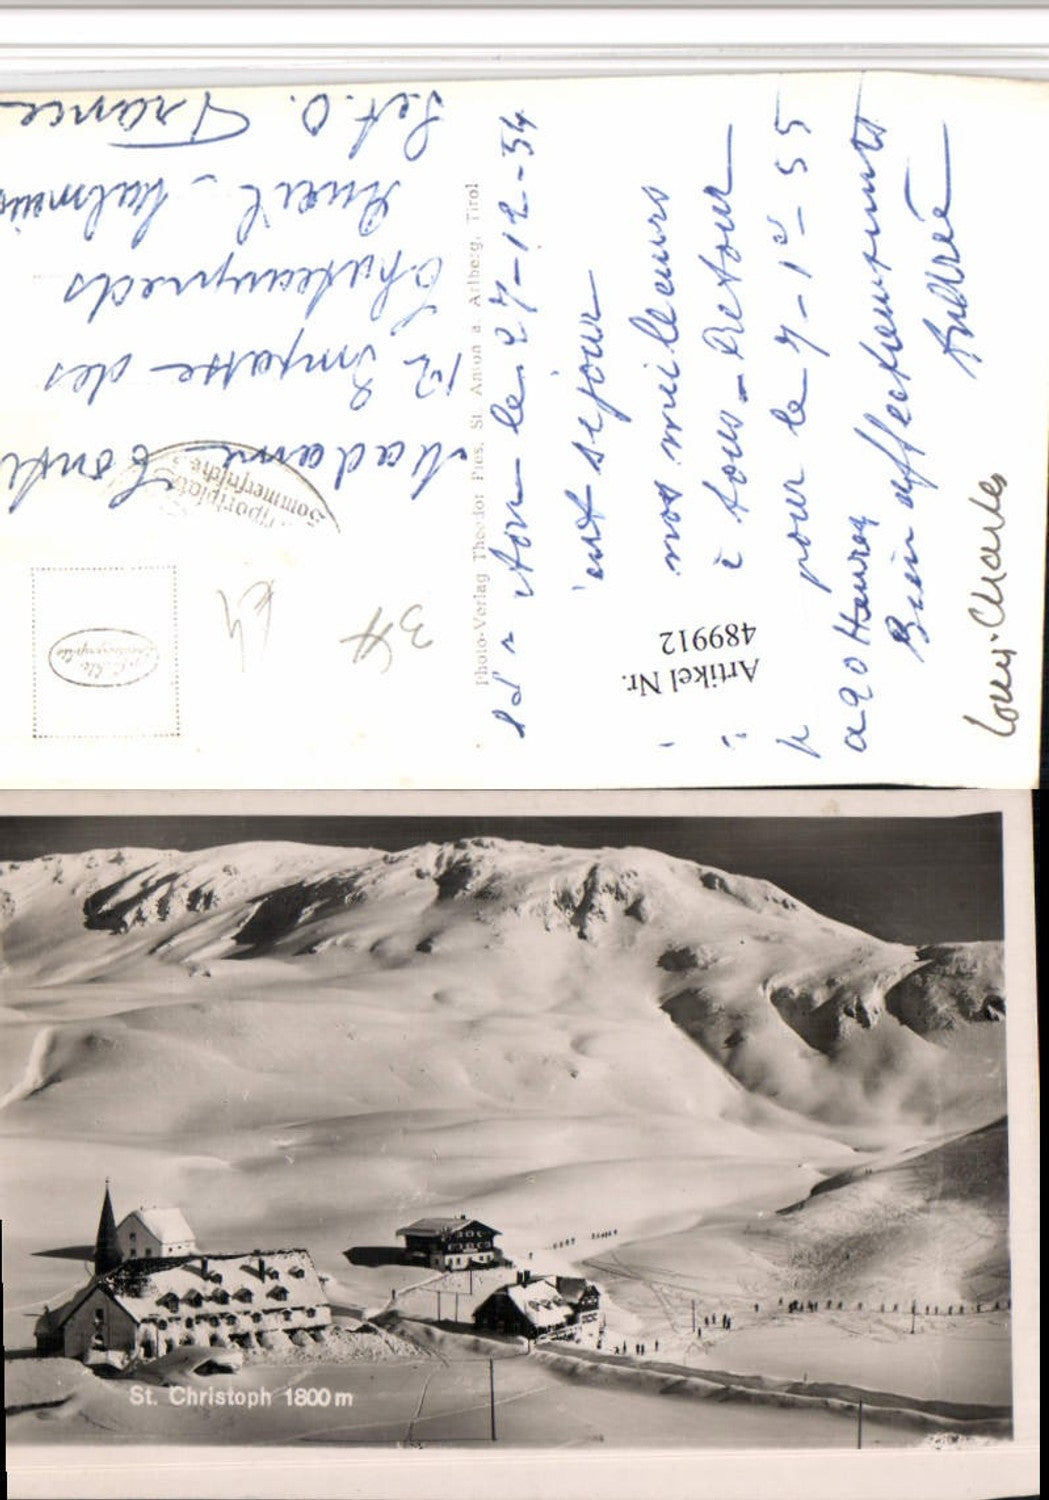 St. Anton le 27-12-54
est sejour
nos meilleurs
à tous - Retour
pour le 7-1er-55
a 20 Heures
Bien affectueusement
Andrée
Louis-Charles
Artikel Nr.
489912
Photo-Verlag Theodor Pies, St. Anton a. Arlberg, Tirol
34
Sportplatz
Sommerfrische
Madame
12 Impasse des
Chateaupieds
Rueil-Malmaison
Set.O. France
St. Christoph 1800 m